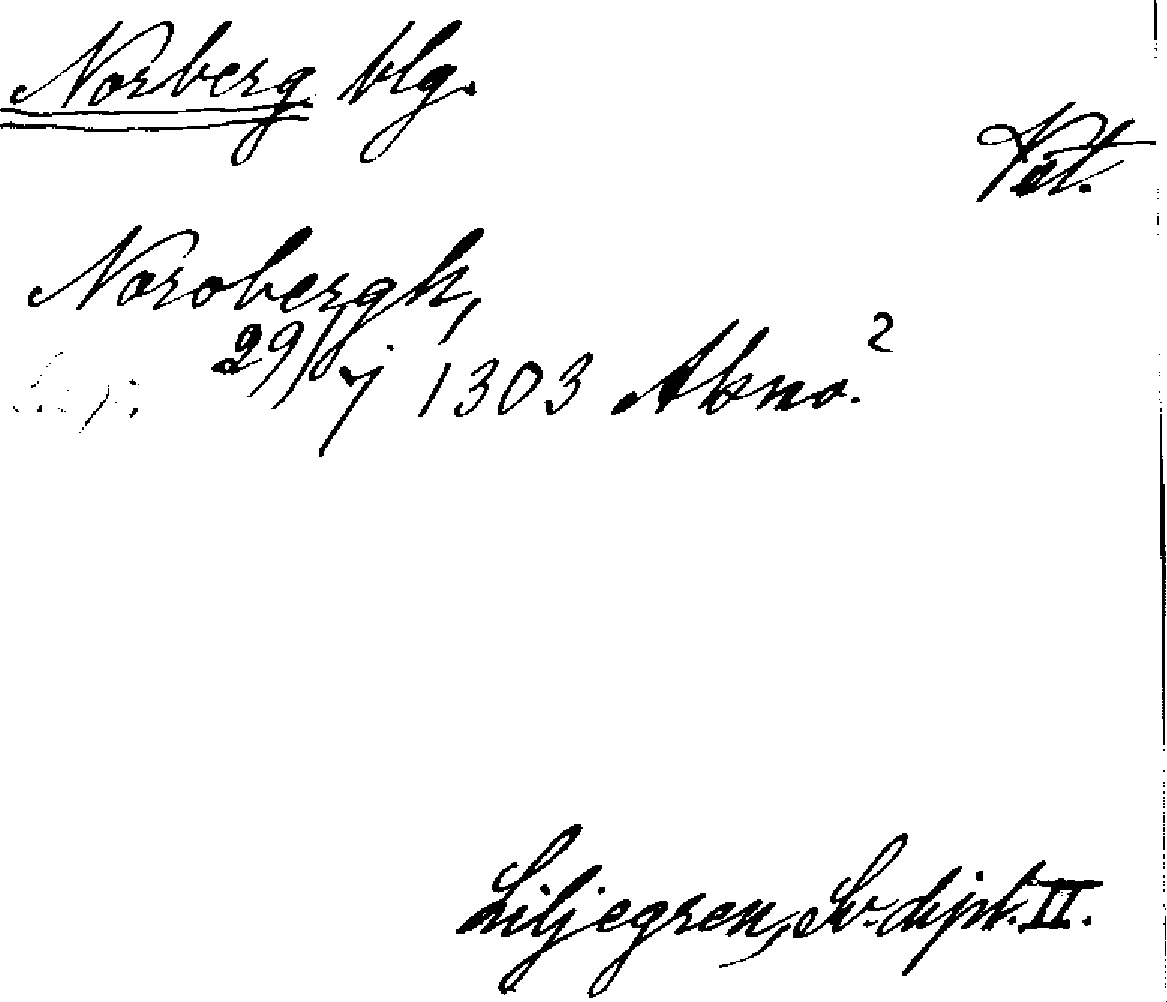 Norberg blg.
Väst.
Norobergh,
29/7 1303 Abno.²
Liljegren, Sv. dipl. II.